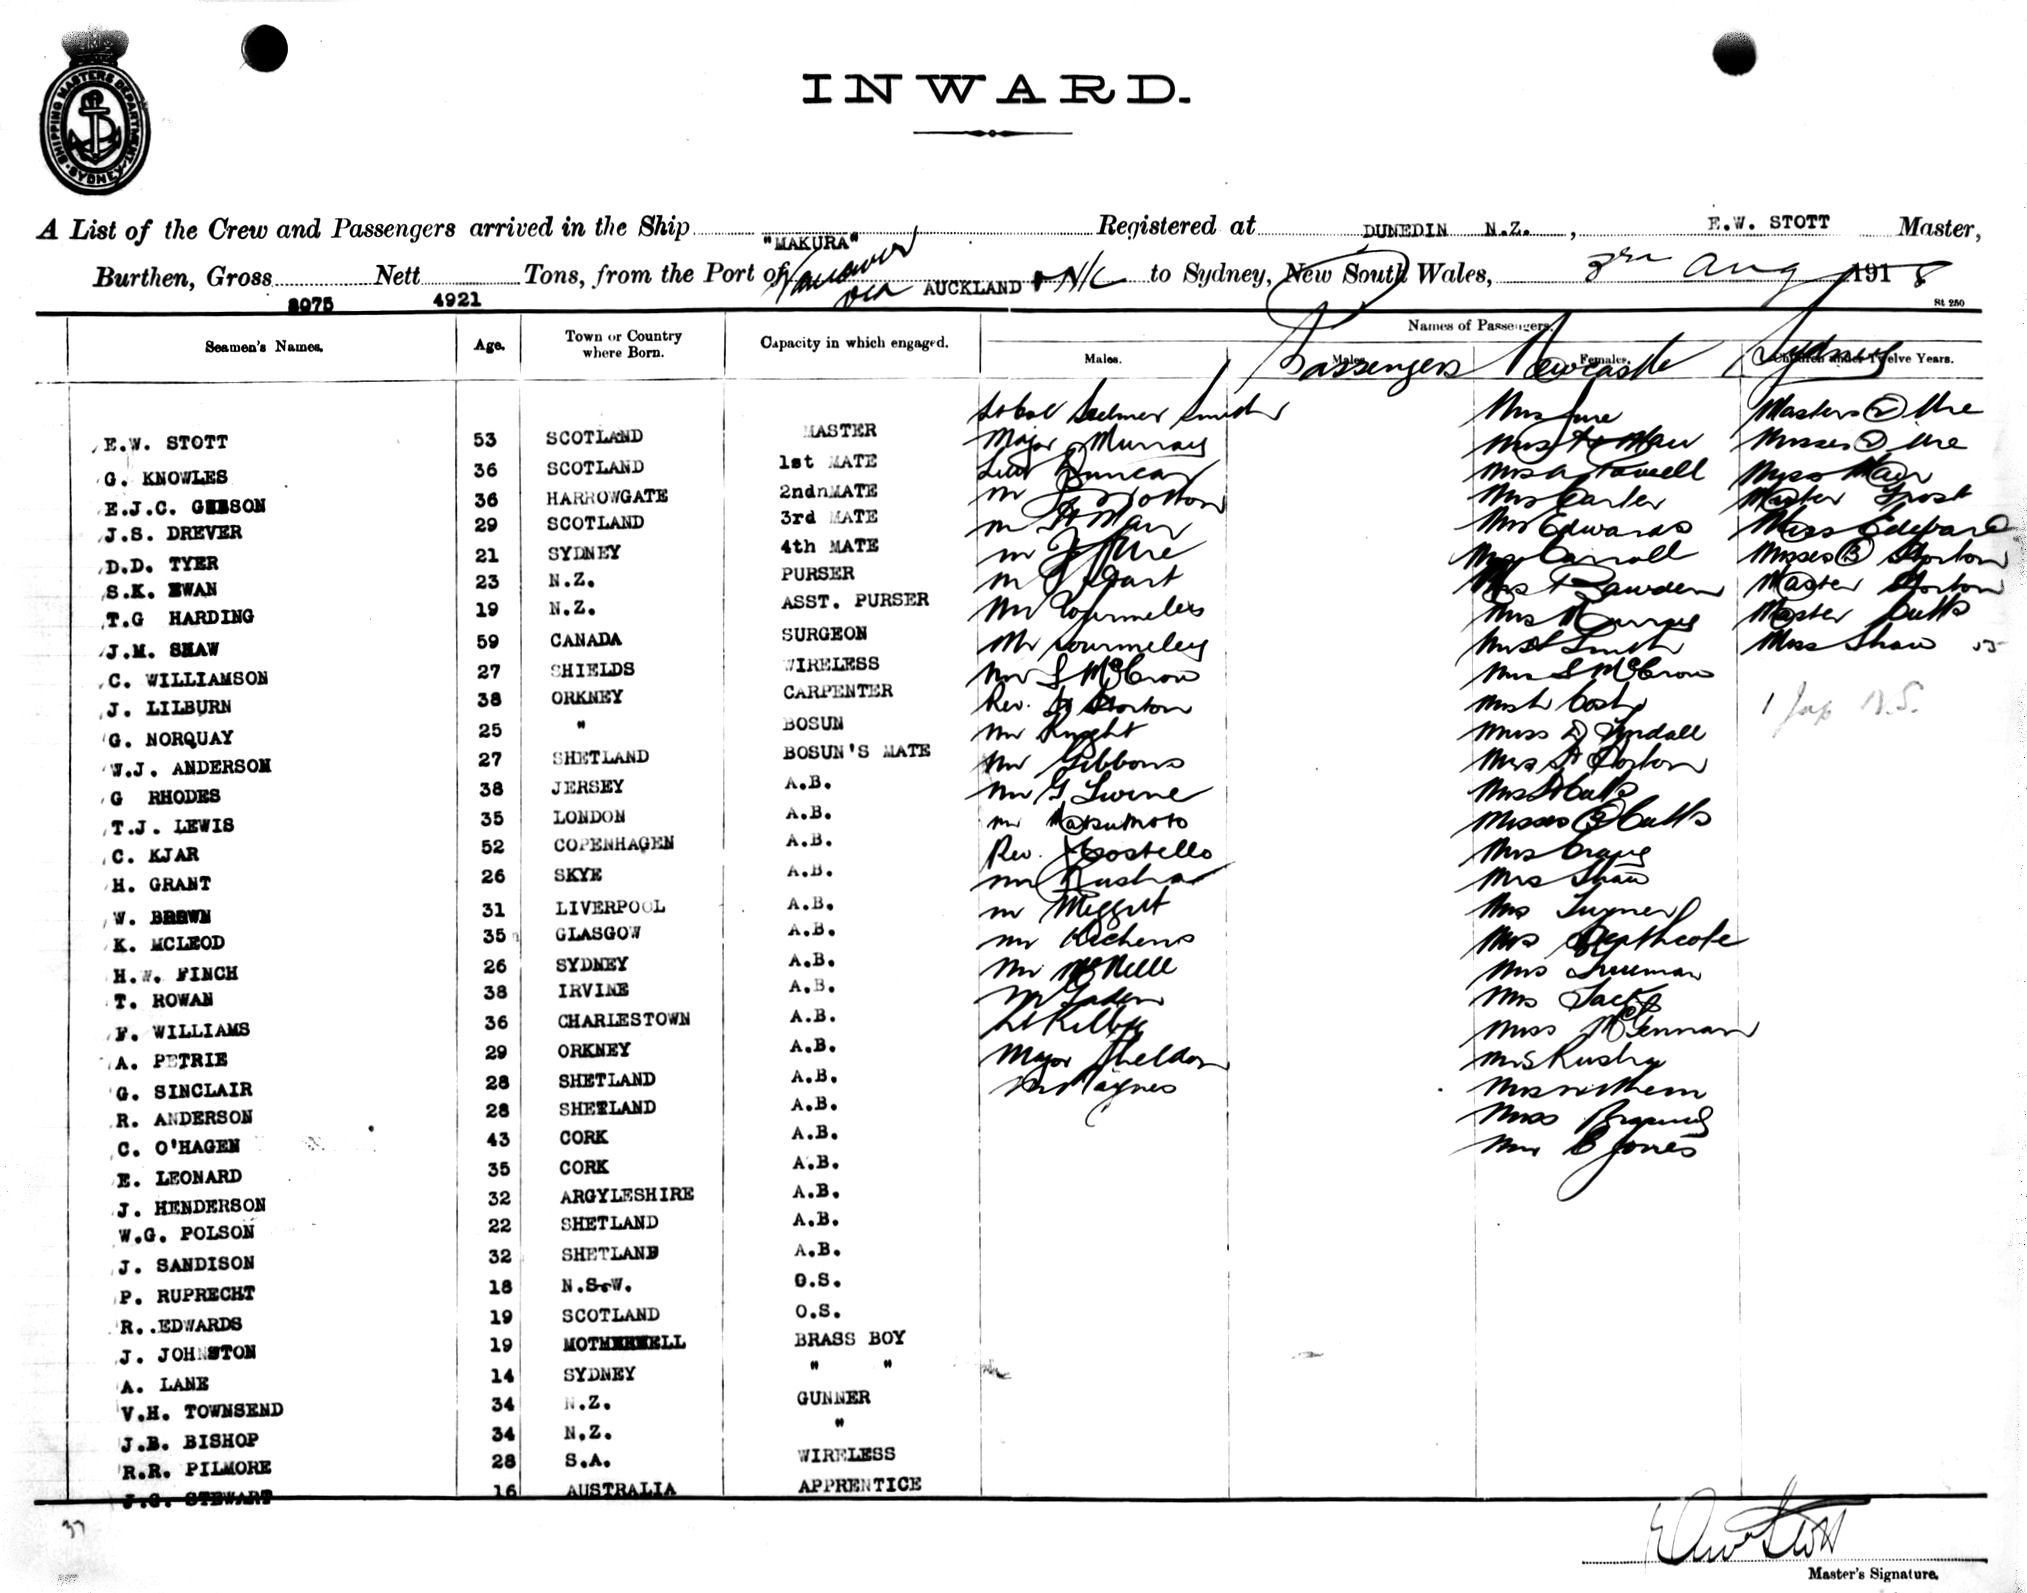 SHIPPING MASTERS DEPARTMENT
SYDNEY
INWARD.
A List of the Crew and Passengers arrived in the Ship "MAKURA" Registered at DUNEDIN N.Z., E.W. STOTT Master,
Burthen, Gross 8075 Nett 4921 Tons, from the Port of Vancouver via AUCKLAND & N/C to Sydney, New South Wales, 3rd Aug 1918
St 250
Seamen's Names. Age. Town or Country where Born. Capacity in which engaged. Names of Passengers.
Males. Males. Females. Children under Twelve Years.
Passengers Newcastle Sydney
E.W. STOTT 53 SCOTLAND MASTER
G. KNOWLES 36 SCOTLAND 1st MATE
E.J.C. GIBSON 36 HARROWGATE 2nd MATE
J.S. DREVER 29 SCOTLAND 3rd MATE
D.D. TYER 21 SYDNEY 4th MATE
S.K. EWAN 23 N.Z. PURSER
T.G HARDING 19 N.Z. ASST. PURSER
J.M. SHAW 59 CANADA SURGEON
C. WILLIAMSON 27 SHIELDS WIRELESS
J. LILBURN 38 ORKNEY CARPENTER
G. NORQUAY 25 " BOSUN
W.J. ANDERSON 27 SHETLAND BOSUN'S MATE
G RHODES 38 JERSEY A.B.
T.J. LEWIS 35 LONDON A.B.
C. KJAR 52 COPENHAGEN A.B.
H. GRANT 26 SKYE A.B.
W. BROWN 31 LIVERPOOL A.B.
K. MCLEOD 35 GLASGOW A.B.
H.W. FINCH 26 SYDNEY A.B.
T. ROWAN 38 IRVINE A.B.
F. WILLIAMS 36 CHARLESTOWN A.B.
A. PETRIE 29 ORKNEY A.B.
G. SINCLAIR 28 SHETLAND A.B.
R. ANDERSON 28 SHETLAND A.B.
C. O'HAGEN 43 CORK A.B.
E. LEONARD 35 CORK A.B.
J. HENDERSON 32 ARGYLESHIRE A.B.
W.G. POLSON 22 SHETLAND A.B.
J. SANDISON 32 SHETLAND A.B.
P. RUPRECHT 18 N.S.W. O.S.
R. EDWARDS 19 SCOTLAND O.S.
J. JOHNSTON 19 MOTHERWELL BRASS BOY
A. LANE 14 SYDNEY " "
V.H. TOWNSEND 34 N.Z. GUNNER
J.B. BISHOP 34 N.Z. "
R.R. PILMORE 28 S.A. WIRELESS
J.G. STEWART 16 AUSTRALIA APPRENTICE
Smith
Major Murray
Lieut Duncan
Mr
Mr H Mair
Mr Ure
Mr Hart
Mr
Mr
Mr S McCrow
Rev. H Horton
Mr Knight
Mr Gibbons
Mr G
Mr Matsumoto
Rev. J Costello
Mr
Mr Meggitt
Mr Kitchens
Mr
Mr Gaden
Lt Kilby
Major Sheldon
Mr Haynes
Mrs Ure
Mrs H Mair
Mrs A Powell
Mrs Carter
Mrs Edwards
Mrs Carroll
Mrs Bawden
Mrs Murray
Mrs Smith
Mrs S McCrow
Mrs
Miss D Tyndall
Mrs H Horton
Mrs Cutts
Misses (3) Cutts
Mrs Craig
Mrs Shaw
Mrs Turner
Mrs Heathcote
Mrs Freeman
Mrs Jack
Miss McLennan
Mrs
Mrs
Miss
Mrs B Jones
Masters (2) Ure
Misses (2) Ure
Miss Mair
Master Frost
Miss Edwards
Misses (3) Horton
Master Horton
Master Cutts
Miss Shaw
1 Jap
37
E W Stott
Master's Signature.